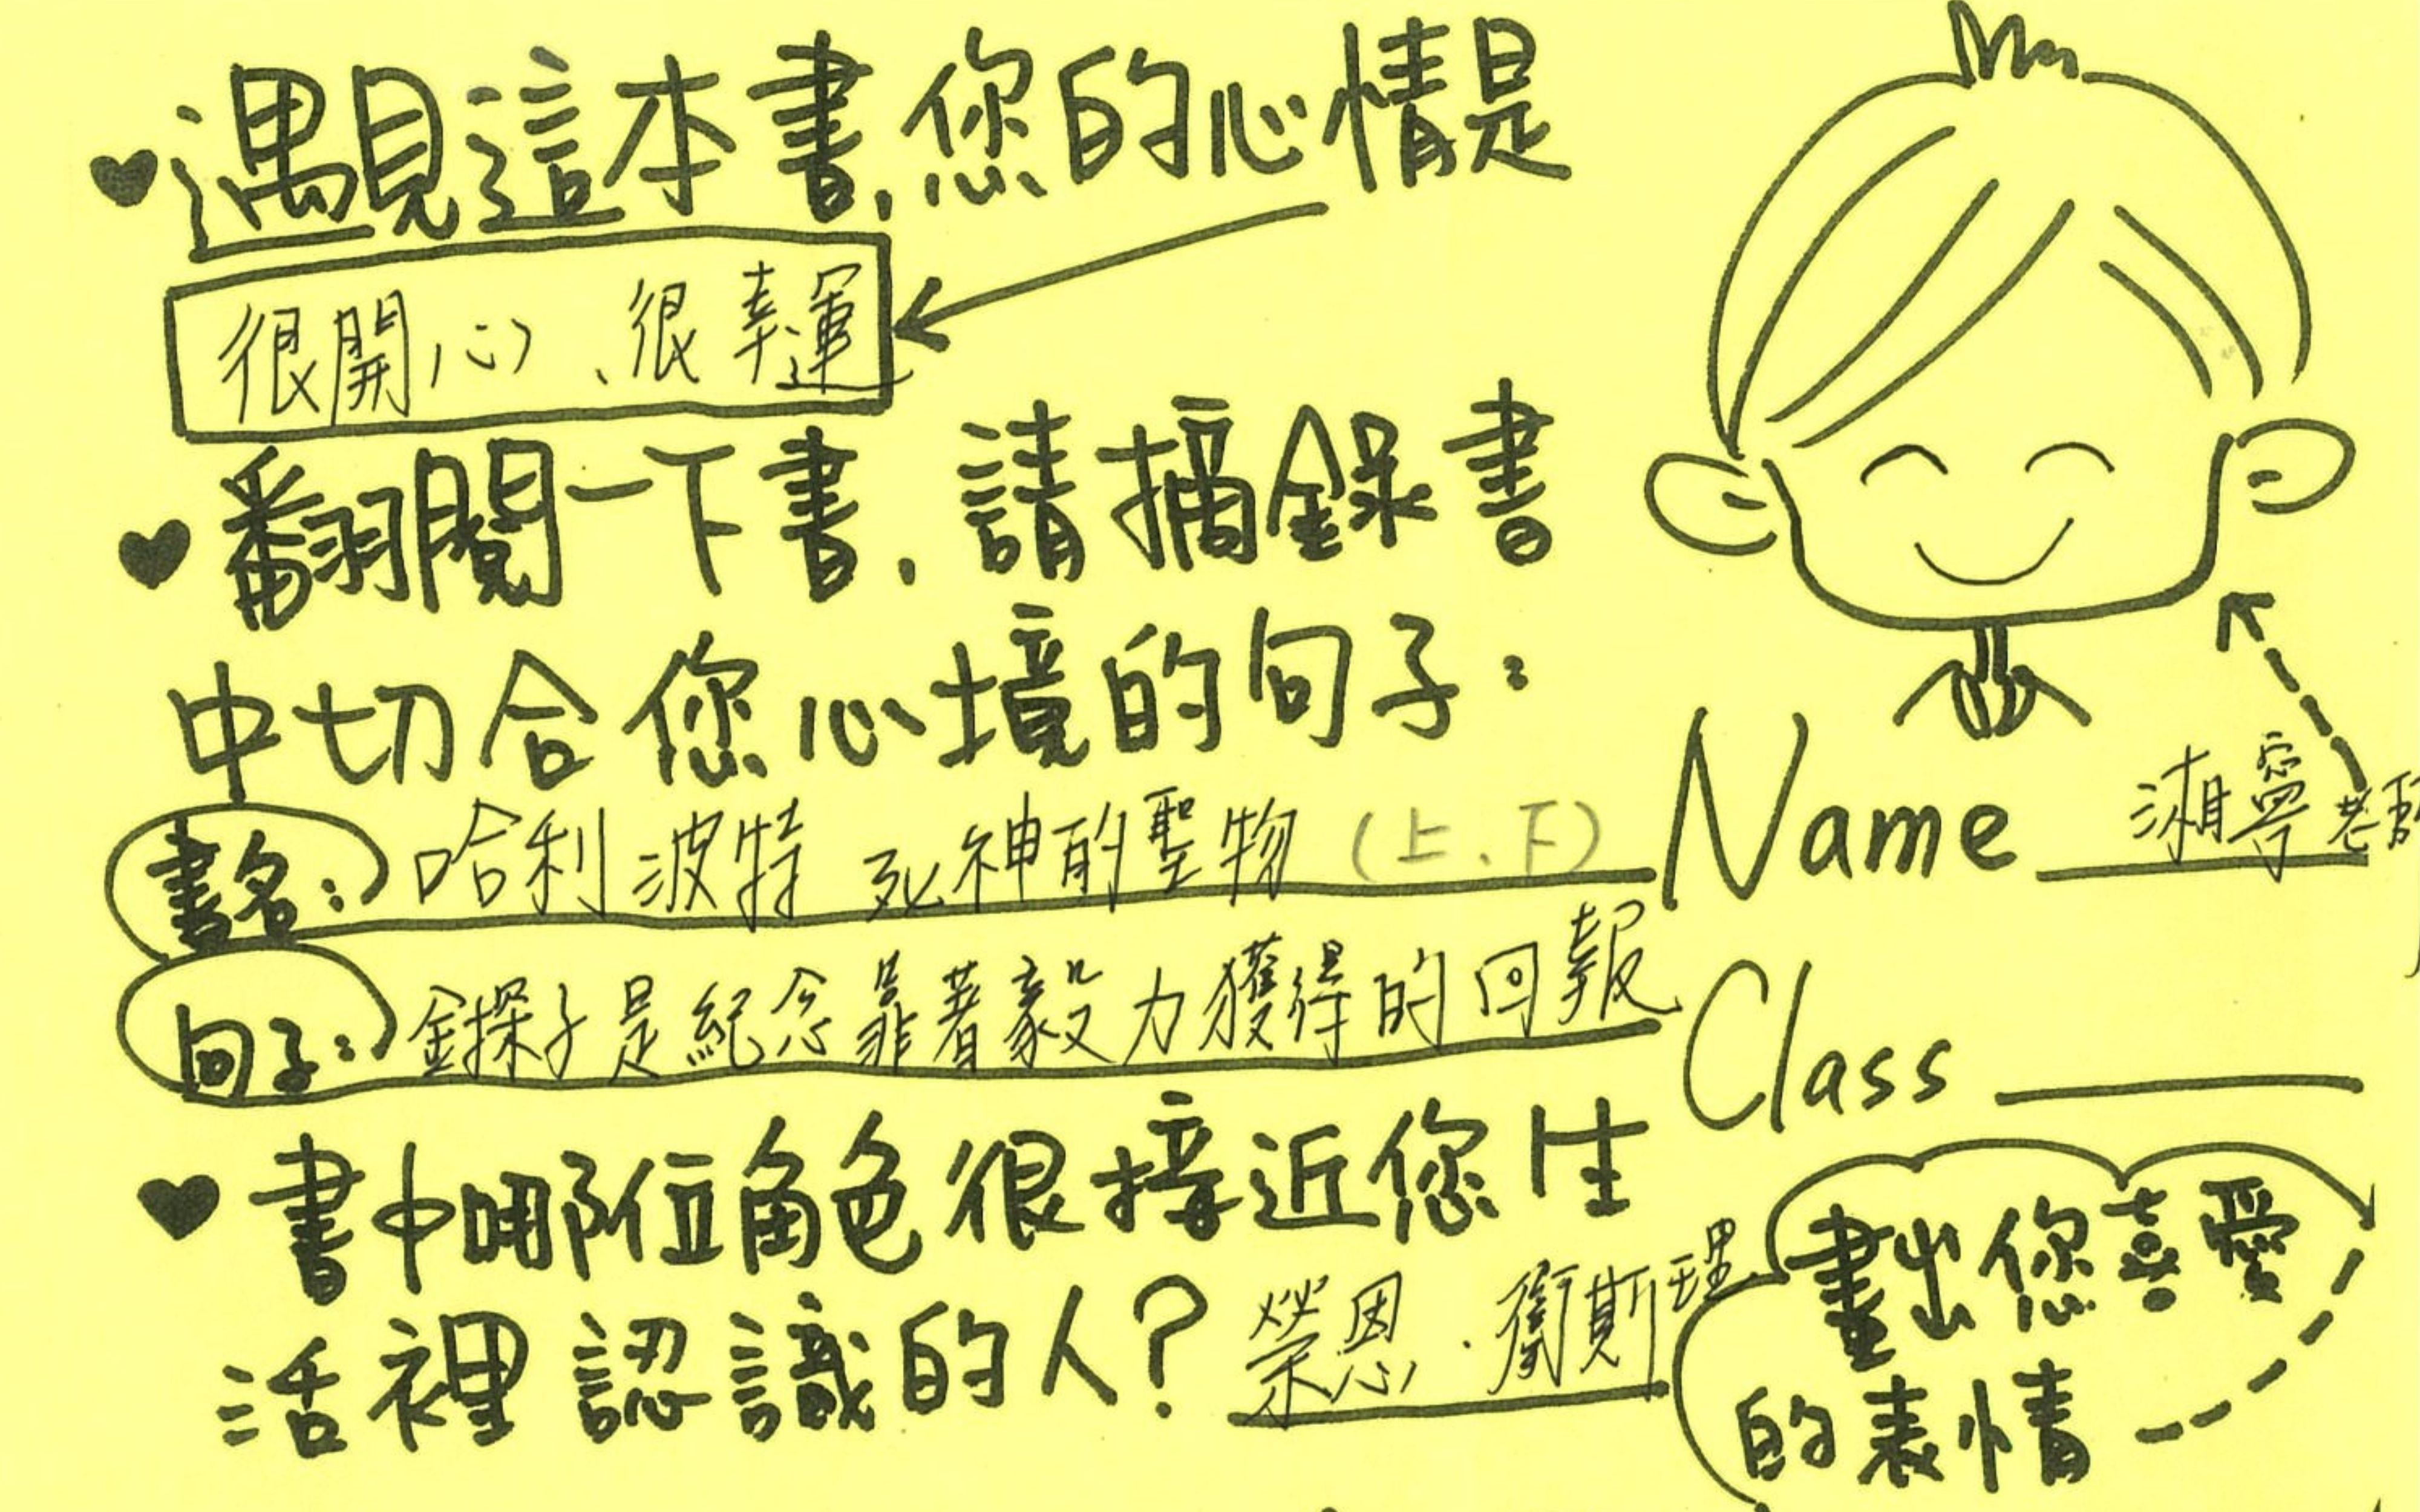 ♥遇見這本書,您的心情是
很開心、很幸運
♥翻閱一下書,請摘錄書
中切合您心境的句子:
書名: 哈利波特 死神的聖物(上、下)
句子: 金探子是紀念靠著毅力獲得的回報
♥書中哪位角色很接近您生
活裡認識的人? 榮恩.衛斯理
Name 湘寧老師
Class
畫出您喜愛
的表情